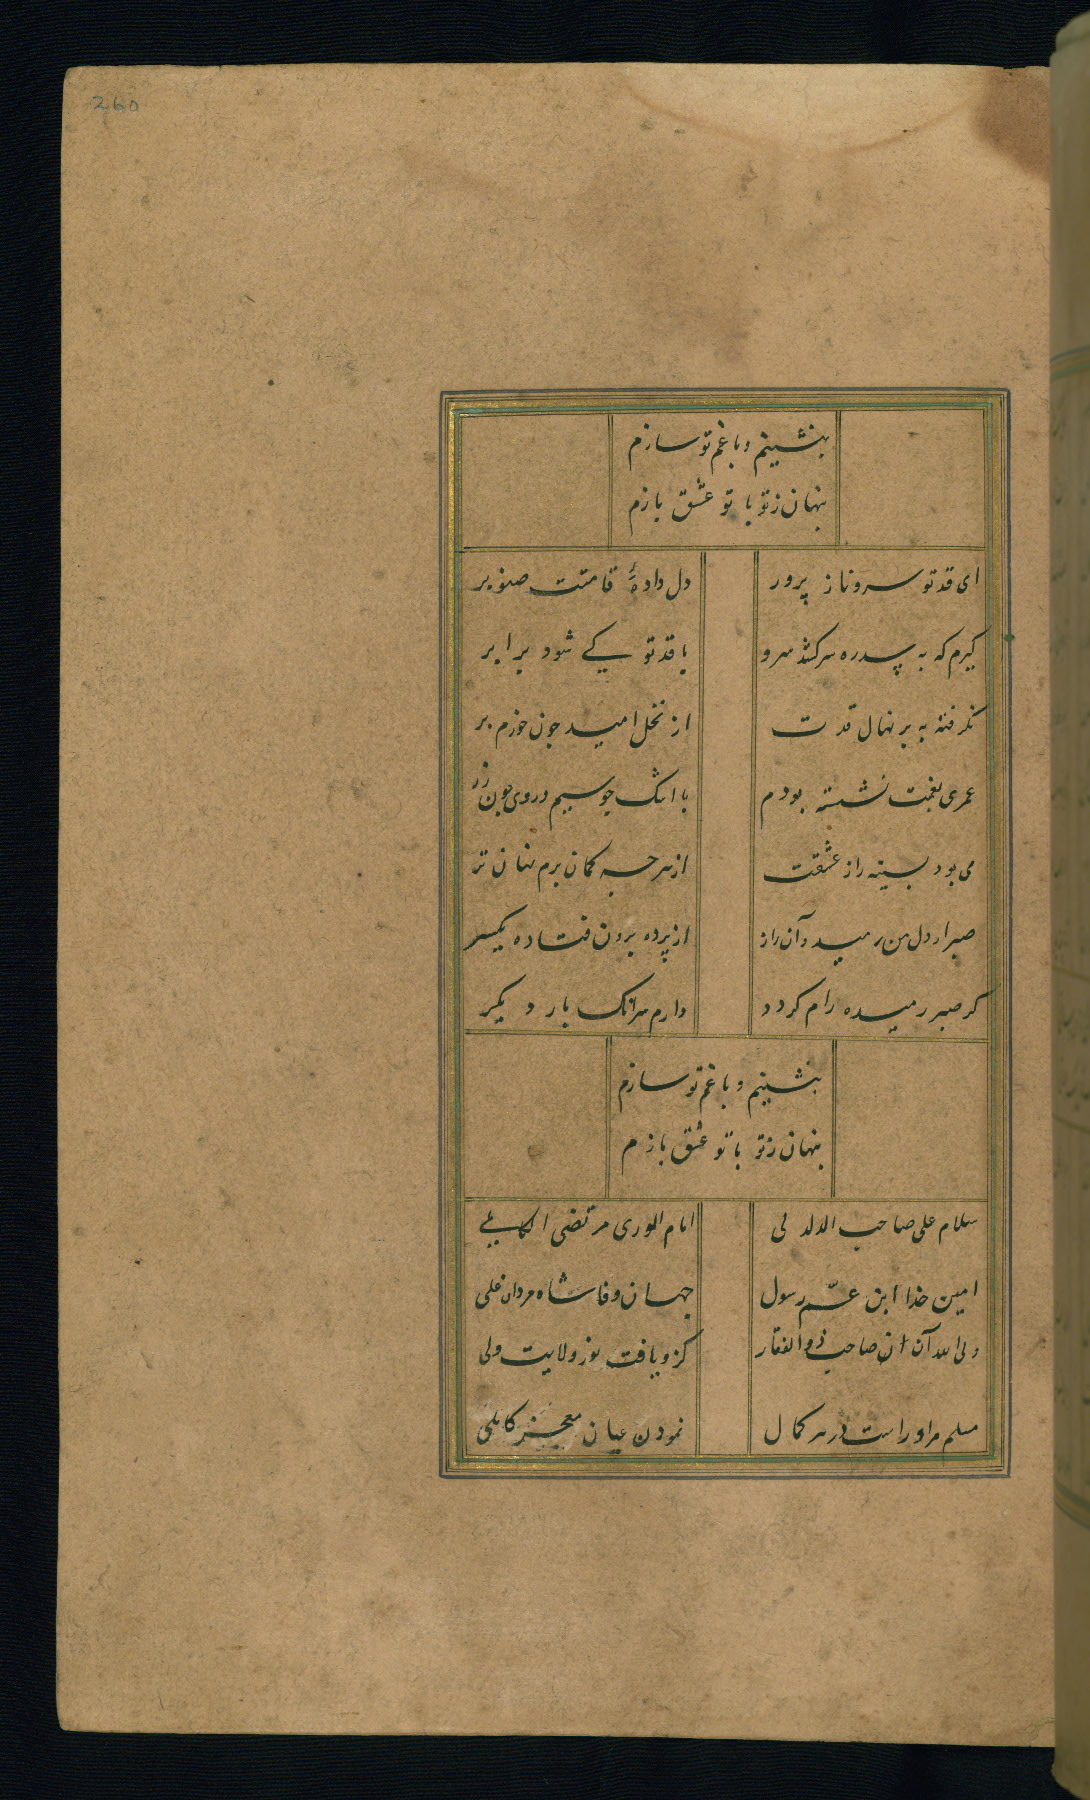 260
بنشینم و با غم تو سازم
پنهان ز تو با تو عشق بازم
ای قد تو سرو ناز پرور دل دادهٔ قامتت صنوبر
گیرم که به سدره سر کشد سرو با قد تو کے شود برابر
نگرفته به بر نهال قدت از نخل امید چون خورم بر
عمری بغمت نشسته بودم با اشک چو سیم و روی چون زر
می بود بسینه راز عشقت از هر چه گمان برم نهان تر
صبر از دل من رمید و آن راز از پرده برون فتاده یکسر
گر صبر رمیده رام گردد دارم سر آنک بار دیگر
بنشینم و با غم تو سازم
پنهان ز تو با تو عشق بازم
سلام علی صاحب الدلدلی امام الوری مرتضی
امین خدا ابن عمّ رسول جهان وفا شاه مردان علی
ولی الله آن صاحب ذوالفقار کزو یافت نور ولایت ولی
مسلم مر او راست در هر کمال نمودن عیان معجز کاملی